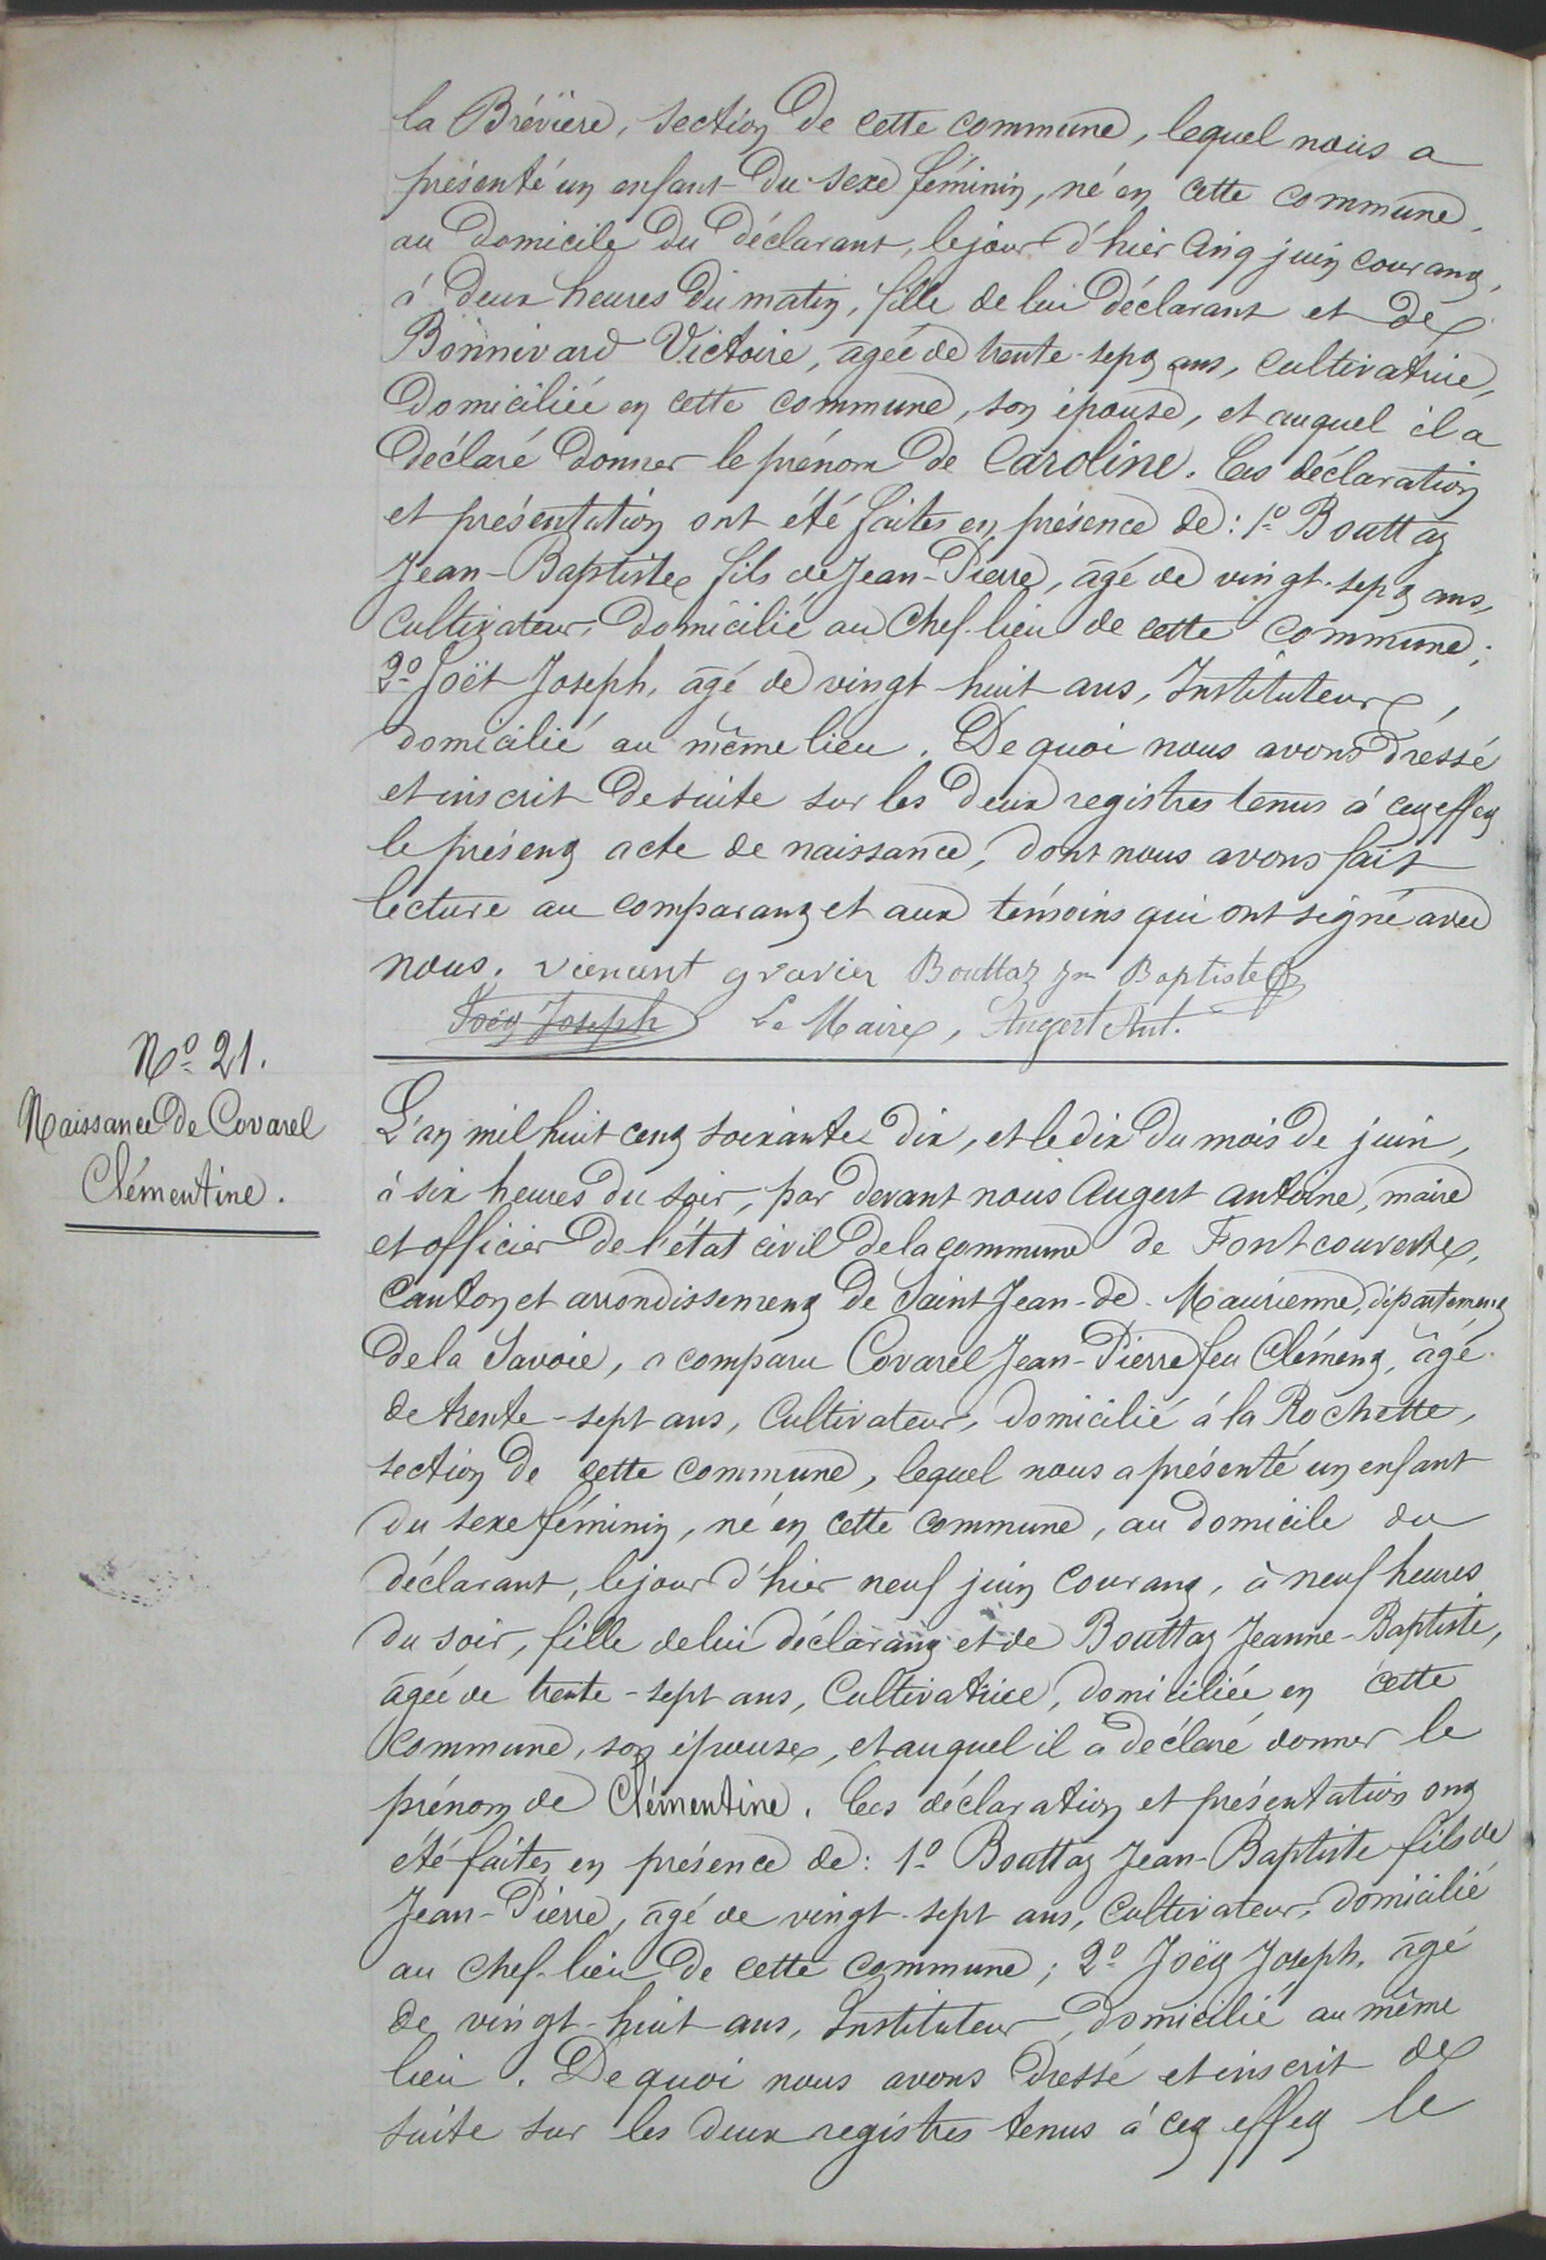 la Brévière, section de cette commune, lequel nous a
présenté un enfant du sexe féminin, né en cette commune,
au domicile du déclarant, le jour d'hier cinq juin courant,
à deux heures du matin, fille de lui déclarant et de
Bonnivard Victoire, agée de trente-sept ans, cultivatrice,
domiciliée en cette commune, son épouse, et auquel il a
déclaré donner le prénom de Caroline. Ces déclaration
et présentation ont été faites en présence de : 1º Bouttaz
Jean-Baptiste fils de Jean-Pierre, âgé de vingt-sept ans,
cultivateur, domicilié au Chef-lieu de cette commune ;
2º Joët Joseph, âgé de vingt-huit ans, Instituteur,
domicilié au même lieu. De quoi nous avons dressé
et inscrit de suite sur les deux registres tenus à cet effet
le présent acte de naissance, dont nous avons fait
lecture au comparant et aux témoins qui ont signé avec
nous. vincent gravier Bouttaz Jn Baptiste
Joët Joseph Le Maire, Augert Ant.
Nº 21.
Naissance de Covarel
Clémentine.
L'an mil huit cent soixante dix, et le dix du mois de juin,
à six heures du soir, par devant nous Augert antoine, maire
et officier de l'état civil de la commune de Fontcouverte,
Canton et arrondissement de Saint Jean-de-Maurienne, département
de la Savoie, a comparu Covarel Jean-Pierre feu Clément, âgé
de trente-sept ans, Cultivateur, domicilié à la Rochette,
section de cette commune, lequel nous a présenté un enfant
du sexe féminin, né en cette commune, au domicile du
déclarant, le jour d'hier neuf juin courant, à neuf heures
du soir, fille de lui déclarant et de Bouttaz Jeanne-Baptiste,
agée de trente-sept ans, Cultivatrice, domiciliée en cette
commune, son épouse, et auquel il a déclaré donner le
prénom de Clémentine. Ces déclaration et présentation ont
été faites en présence de : 1º Bouttaz Jean-Baptiste fils de
Jean-Pierre, âgé de vingt-sept ans, Cultivateur, domicilié
au chef-lieu de cette commune ; 2º Joët Joseph, âgé
de vingt-huit ans, Instituteur, domicilié au même
lieu. De quoi nous avons dressé et inscrit de
suite sur les deux registres tenus à cet effet le